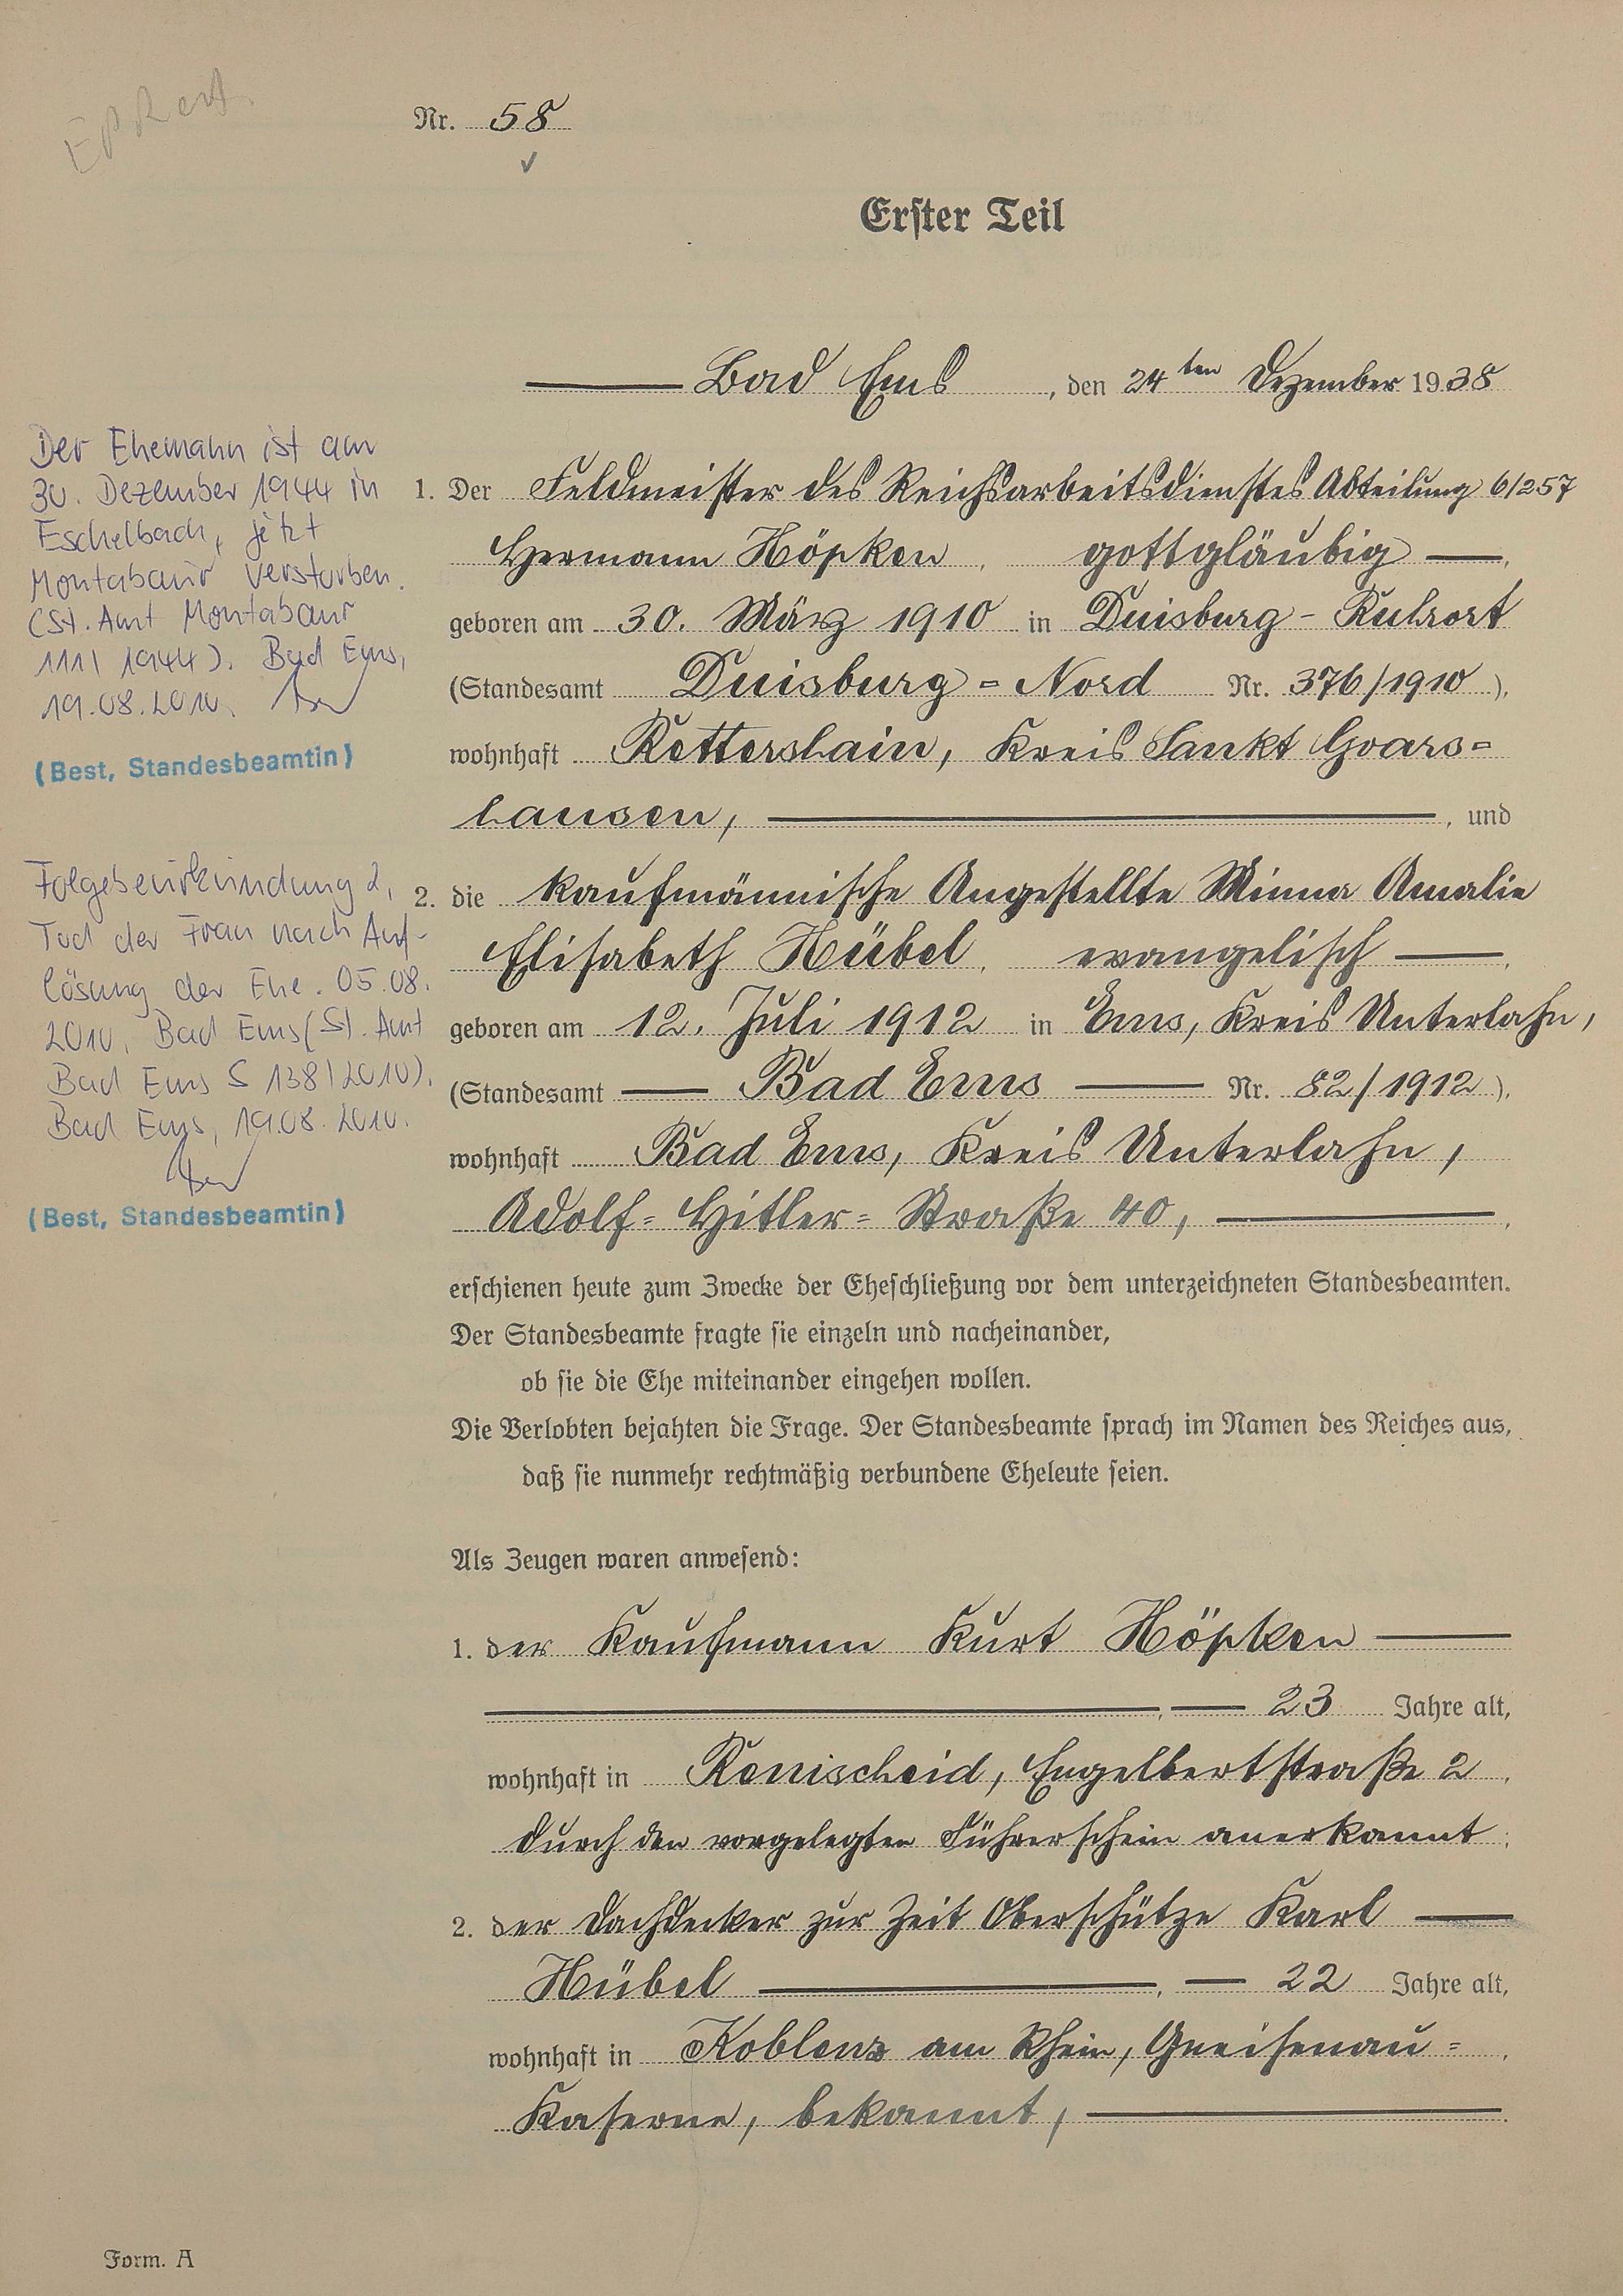 Nr. 58
Erster Teil
Bad Ems, den 24ten Dezember 1938
Der Ehemann ist am
30. Dezember 1944 in
Eschelbach, jetzt
Montabaur verstorben.
(St. Amt Montabaur
111/1944). Bad Ems,
19.08.2010.
(Best, Standesbeamtin)
Folgebeurkundung 2,
Tod der Frau nach Auf-
lösung der Ehe. 05.08.
2010, Bad Ems (St. Amt
Bad Ems S 138/2010).
Bad Ems, 19.08.2010.
(Best, Standesbeamtin)
1. Der Feldmeister des Reichsarbeitsdienstes Abteilung 6/257
Hermann Höpken, gottgläubig,
geboren am 30. März 1910 in Duisburg-Ruhrort
(Standesamt Duisburg-Nord Nr. 376/1910),
wohnhaft Rettershain, Kreis Sankt Goars=
hausen, , und
2. die kaufmännische Angestellte Minna Amalie
Elisabeth Hübel, evangelisch,
geboren am 12. Juli 1912 in Ems, Kreis Unterlahn,
(Standesamt Bad Ems Nr. 82/1912),
wohnhaft Bad Ems, Kreis Unterlahn,
Adolf=Hitler=Straße 40, ,
erschienen heute zum Zwecke der Eheschließung vor dem unterzeichneten Standesbeamten.
Der Standesbeamte fragte sie einzeln und nacheinander,
ob sie die Ehe miteinander eingehen wollen.
Die Verlobten bejahten die Frage. Der Standesbeamte sprach im Namen des Reiches aus,
daß sie nunmehr rechtmäßig verbundene Eheleute seien.
Als Zeugen waren anwesend:
1. der Kaufmann Kurt Höpken
, 23 Jahre alt,
wohnhaft in Remscheid, Engelbertstraße 2,
durch den vorgelegten Führerschein anerkannt;
2. der Dachdecker zur Zeit Oberschütze Karl
Hübel, 22 Jahre alt,
wohnhaft in Koblenz am Rhein, Gneisenau=,
Kaserne, bekannt, .
Form. A